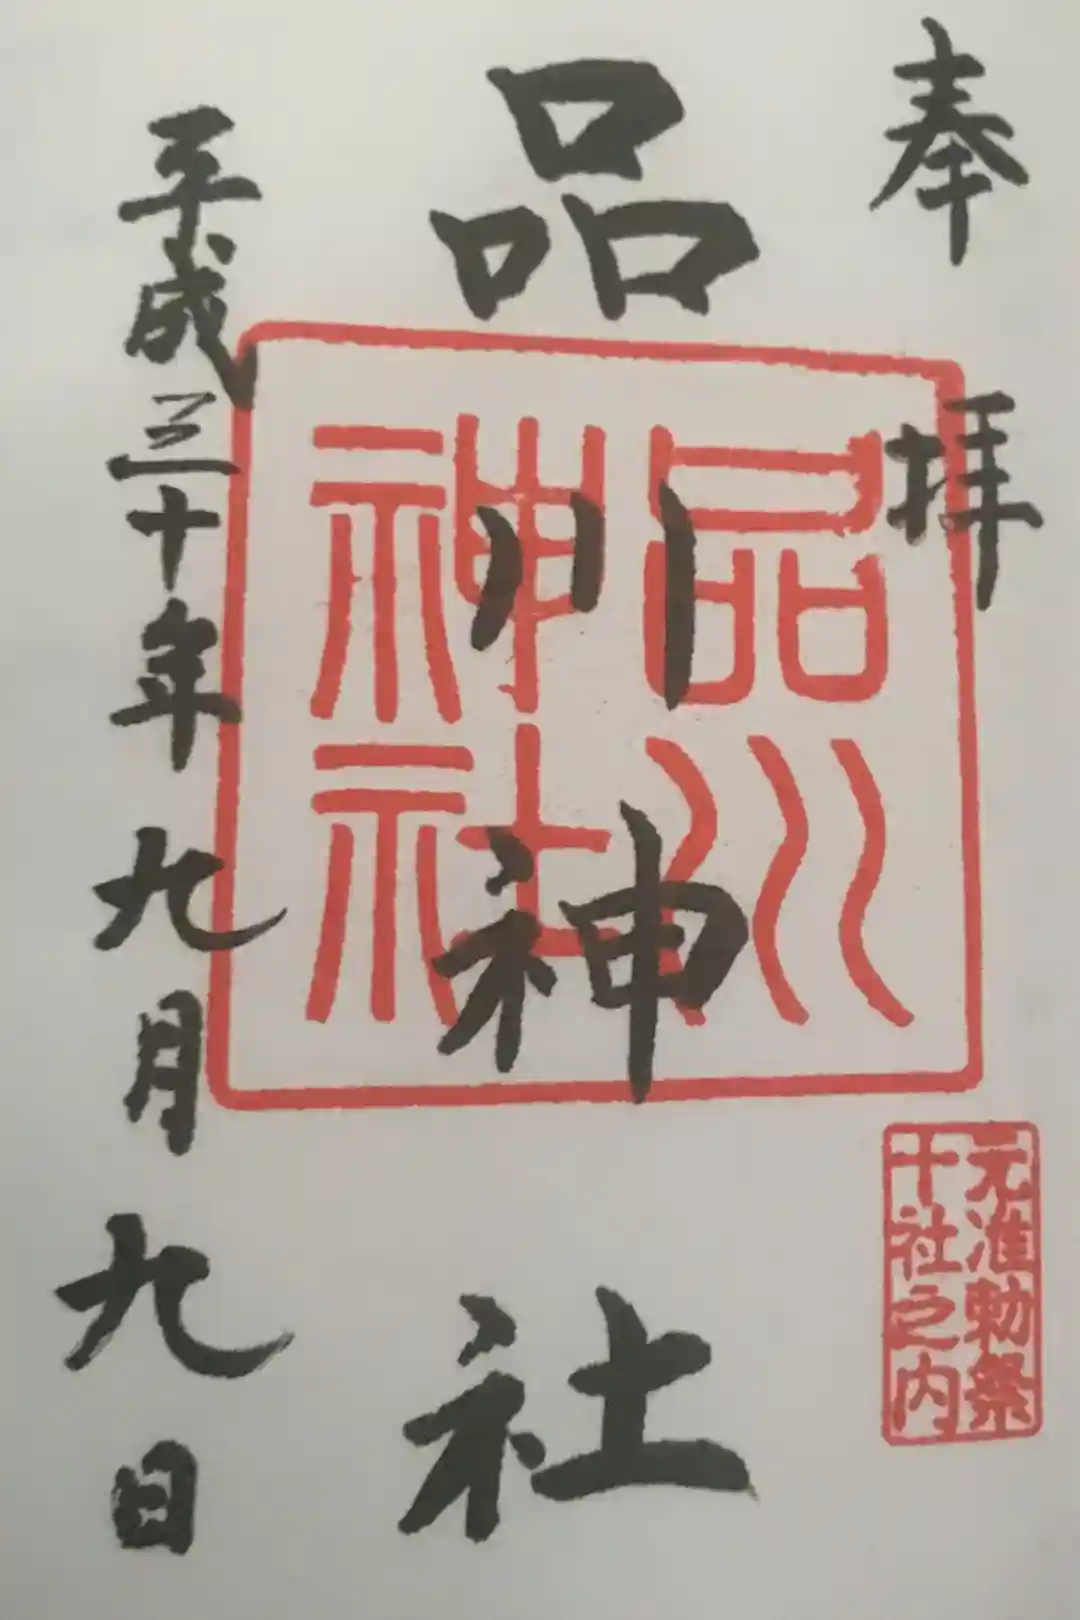 奉拝
品川神社
品川
神社
平成三十年九月九日
元准勅祭
十社之内